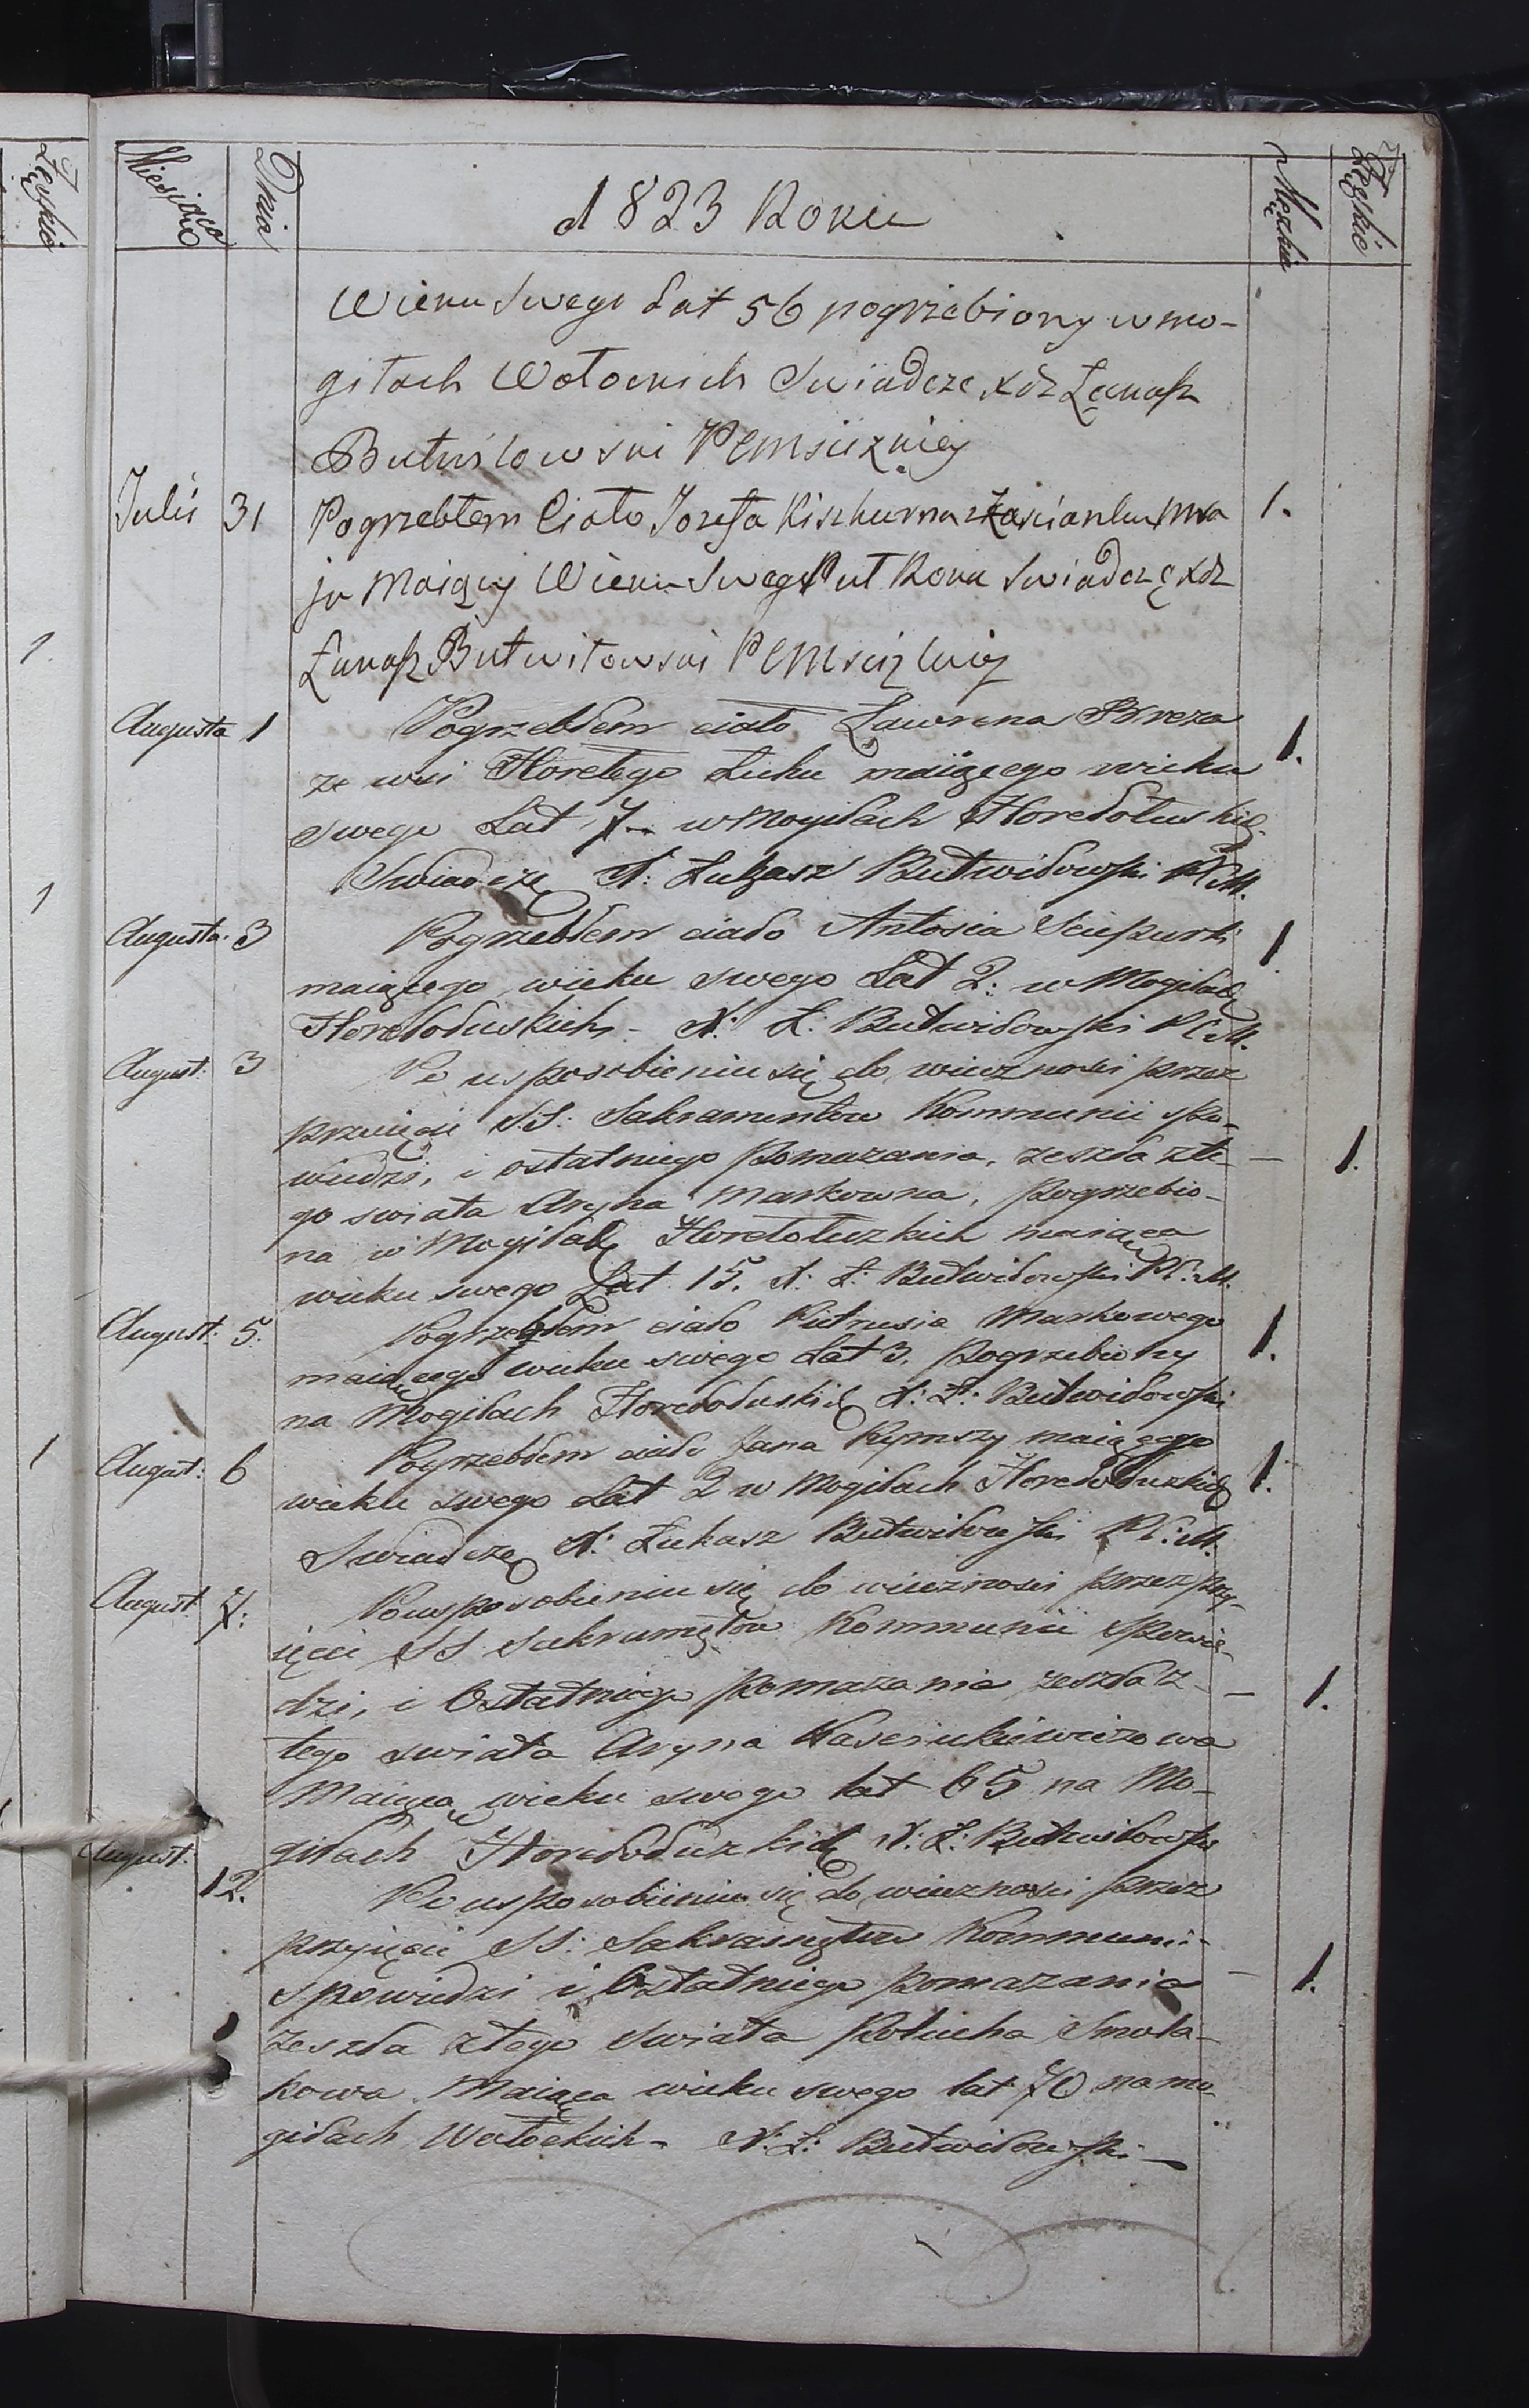 Żeńskie
Miesiąca
Dnia
1823 Roku
Męzkie
Żeńskie
Wieku Swego Lat 56 pogrzebiony w mo-
giłach Wołockich Swiadczę xdz Łukasz
Butwiłowski PCM
Julii 31 Pogrzebłem Ciało Jozefa zaścianku 1.
maiący Wieku Swego Puł Roku Swiadczę xdz
Łukasz Butwiłowski PCM
Augusta 1 Pogrzebłem ciało Ławrena Breza 1.
ze wsi Horełego Łuhu maiącego wieku
swego Lat 7 w Mogiłach
Swiadczę X: Łukasz Butwiłowski PCM.
Augusta 3 Pogrzebłem ciało Antosia 1
maiącego wieku swego Lat 2: w Mogiłach
Horełołuskich - X: Ł: Butwiłowski PCM.
August: 3 Po usposobieniu się do wieczności przez
przyięcie SS: Sakramentow Kommunii spo-
wiedzi, i ostatniego Pomazania, zeszła z te- — 1.
go swiata Aryna Markowna, Pogrzebio-
na w Mogiłach Horełołuzkich maiąca
wieku swego Lat 15. X: Ł: Butwiłowski PC:M.
August: 5. Pogrzebłem ciało Pietrusia Markowego 1.
maiącego wieku swego Lat 3. Pogrzebiony
na Mogiłach Horełołuskich X: Ł: Butwiłowski
August: 6 Pogrzebłem ciało Jana Rymszy maiącego 1.
wieku swego Lat 2 w Mogiłach Horełołuzkich
Swiadczę X: Łukasz Butwiłowski PC:M.
August 7: Po usposobieniu się do wieczności przez przy-
ięcie SS Sakramętow Kommunii Spowie-
dzi, i Ostatniego Pomazania zeszła z — 1.
tego swiata Aryna
Maiąca wieku swego lat 65 na Mo-
giłach Horełołuzkich X: Ł: Butwiłowski
August: 12. Po usposobieniu się do wieczności przez
przyięcie SS: Sakramętow Kommuni-
spowiedzi i Ostatniego Pomazania — 1.
zeszła z tego Swiata Smola-
kowa Maiąca wieku swego lat 70 na mo-
giłach Wołockich - X: Ł: Butwiłowski